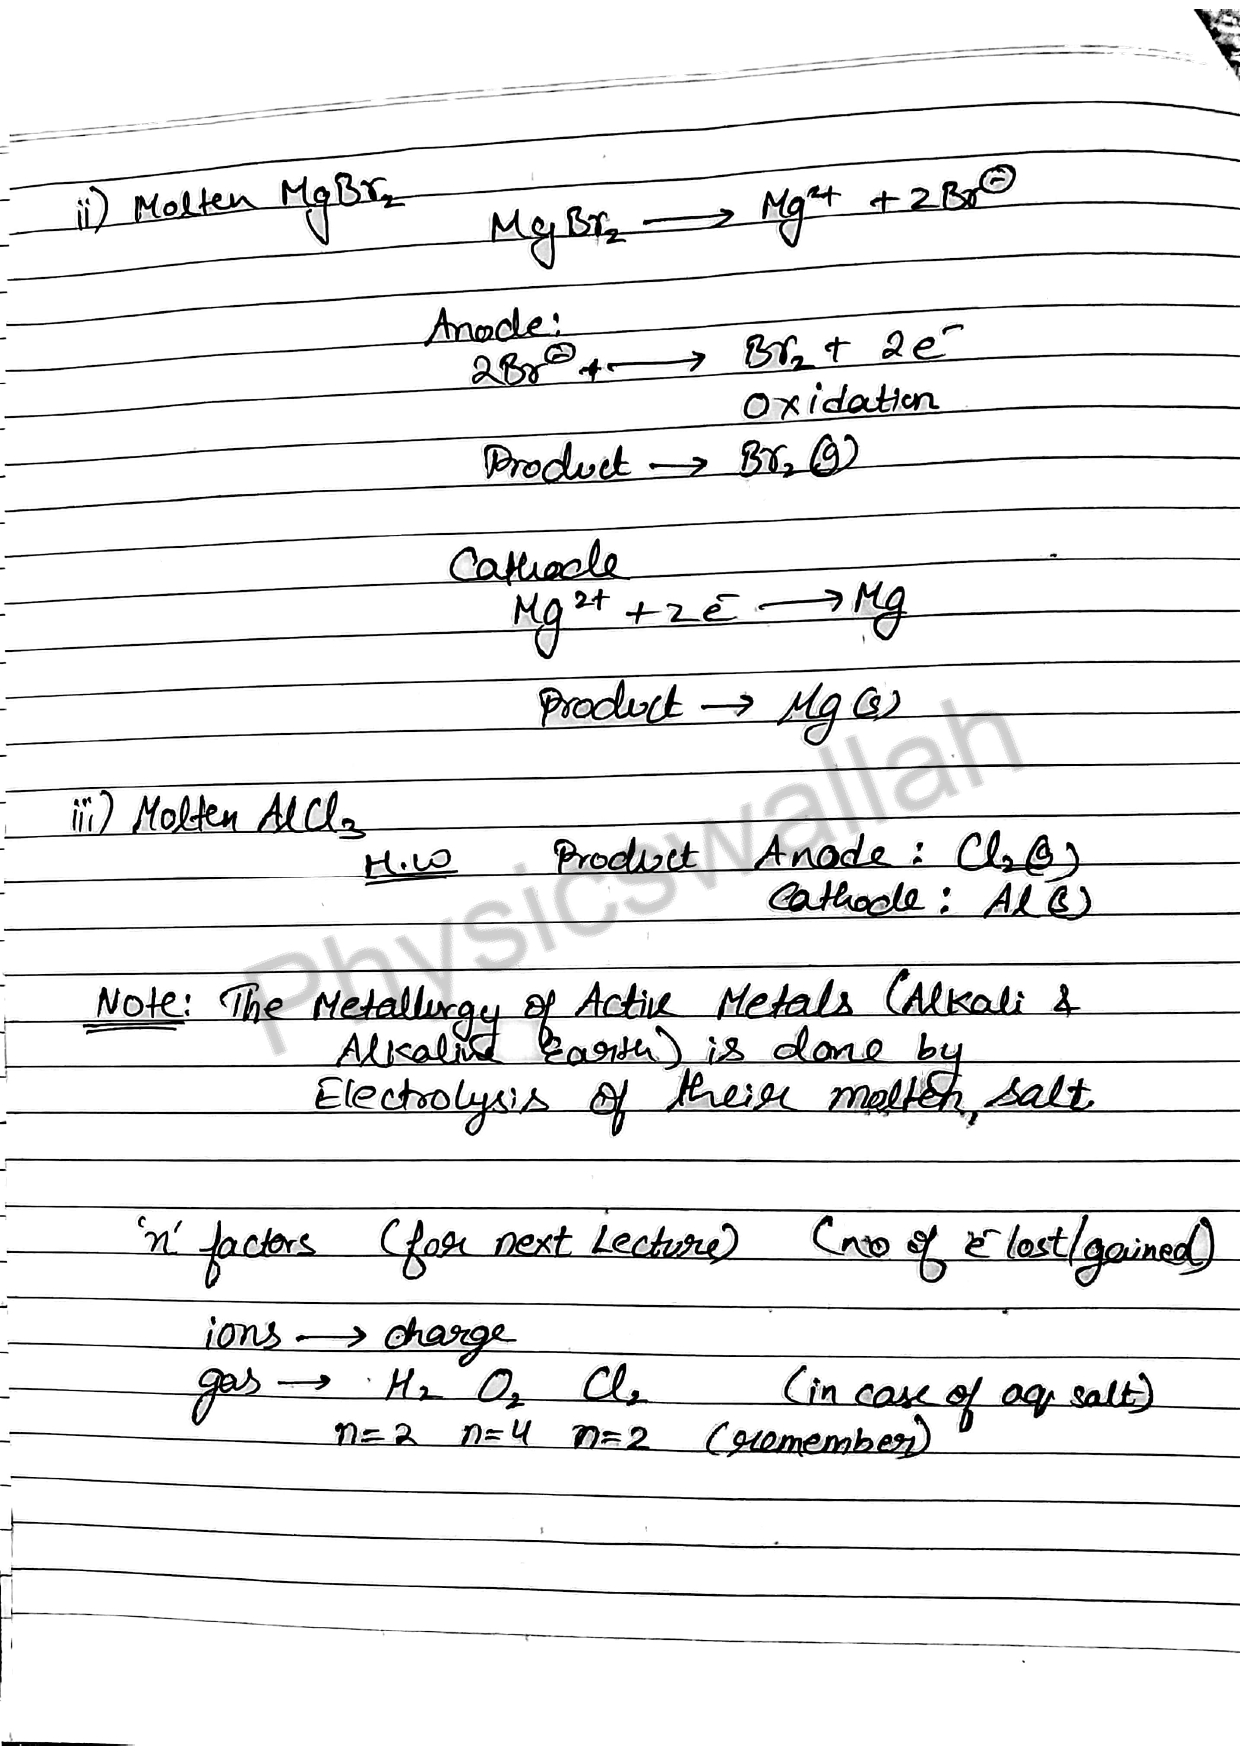 ii) Molten MgBr₂
MgBr₂ ⟶ Mg²⁺ + 2Br⊖
Anode:
2Br⊖ + ⟶ Br₂ + 2e⁻
Oxidation
Product ⟶ Br₂(g)
Cathode
Mg²⁺ + 2e⁻ ⟶ Mg
Product ⟶ Mg(s)
iii) Molten AlCl₃
H.W Product Anode : Cl₂(g)
Cathode : Al(s)
Note: The Metallurgy of Active Metals (Alkali &
Alkaline Earth) is done by
Electrolysis of their molten, salt
'n' factors (for next Lecture) (no of e⁻ lost/gained)
ions ⟶ charge
gas ⟶ H₂ O₂ Cl₂ (in case of aq salt)
n=2 n=4 n=2 (remember)
Physicswallah